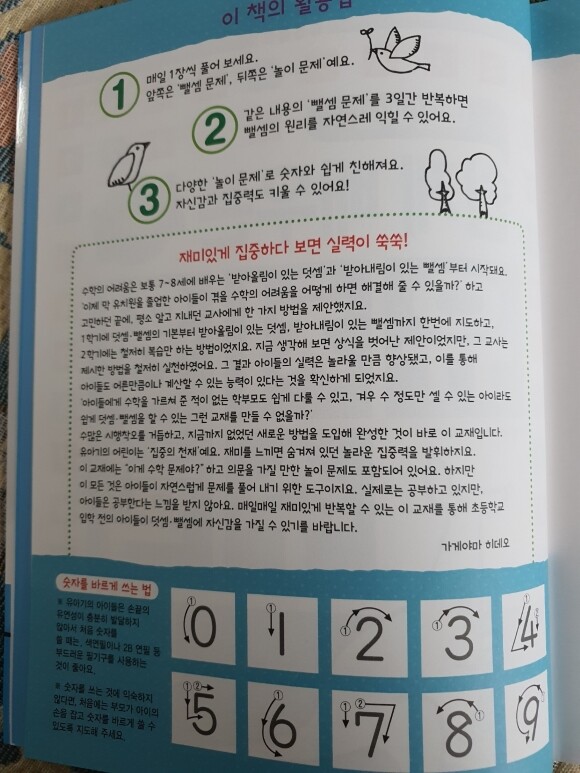 이 책의 활용법
1 매일 1장씩 풀어 보세요.
앞쪽은 '뺄셈 문제', 뒤쪽은 '놀이 문제'예요.
2 같은 내용의 '뺄셈 문제'를 3일간 반복하면
뺄셈의 원리를 자연스레 익힐 수 있어요.
3 다양한 '놀이 문제'로 숫자와 쉽게 친해져요.
자신감과 집중력도 키울 수 있어요!
재미있게 집중하다 보면 실력이 쑥쑥!
수학의 어려움은 보통 7~8세에 배우는 '받아올림이 있는 덧셈'과 '받아내림이 있는 뺄셈'부터 시작돼요.
'이제 막 유치원을 졸업한 아이들이 겪을 수학의 어려움을 어떻게 하면 해결해 줄 수 있을까?' 하고
고민하던 끝에, 평소 알고 지내던 교사에게 한 가지 방법을 제안했지요.
1학기에 덧셈·뺄셈의 기본부터 받아올림이 있는 덧셈, 받아내림이 있는 뺄셈까지 한번에 지도하고,
2학기에는 철저히 복습만 하는 방법이었지요. 지금 생각해 보면 상식을 벗어난 제안이었지만, 그 교사는
제시한 방법을 철저히 실천하였어요. 그 결과 아이들의 실력은 놀라울 만큼 향상됐고, 이를 통해
아이들도 어른만큼이나 계산할 수 있는 능력이 있다는 것을 확신하게 되었지요.
'아이들에게 수학을 가르쳐 준 적이 없는 학부모도 쉽게 다룰 수 있고, 겨우 수 정도만 셀 수 있는 아이라도
쉽게 덧셈·뺄셈을 할 수 있는 그런 교재를 만들 수 없을까?'
수많은 시행착오를 거듭하고, 지금까지 없었던 새로운 방법을 도입해 완성한 것이 바로 이 교재입니다.
유아기의 어린이는 '집중의 천재'예요. 재미를 느끼면 숨겨져 있던 놀라운 집중력을 발휘하지요.
이 교재에는 "이게 수학 문제야?" 하고 의문을 가질 만한 놀이 문제도 포함되어 있어요. 하지만
이 모든 것은 아이들이 자연스럽게 문제를 풀어 내기 위한 도구이지요. 실제로는 공부하고 있지만,
아이들은 공부한다는 느낌을 받지 않아요. 매일매일 재미있게 반복할 수 있는 이 교재를 통해 초등학교
입학 전의 아이들이 덧셈·뺄셈에 자신감을 가질 수 있기를 바랍니다.
가게야마 히데오
숫자를 바르게 쓰는 법
※ 유아기의 아이들은 손끝의
유연성이 충분히 발달하지
않아서 처음 숫자를
쓸 때는, 색연필이나 2B 연필 등
부드러운 필기구를 사용하는
것이 좋아요.
※ 숫자를 쓰는 것에 익숙하지
않다면, 처음에는 부모가 아이의
손을 잡고 숫자를 바르게 쓸 수
있도록 지도해 주세요.
① 0 ① 1 ① 2 ① 3 ① 4
① ② 5 ① 6 ① ② 7 ① 8 ① 9